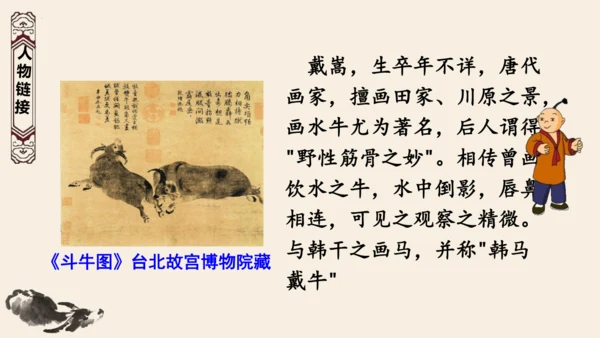 人物链接
戴嵩，生卒年不详，唐代
画家，擅画田家、川原之景，
画水牛尤为著名，后人谓得
"野性筋骨之妙"。相传曾画
饮水之牛，水中倒影，唇鼻
相连，可见之观察之精微。
与韩干之画马，并称"韩马
戴牛"
《斗牛图》台北故宫博物院藏